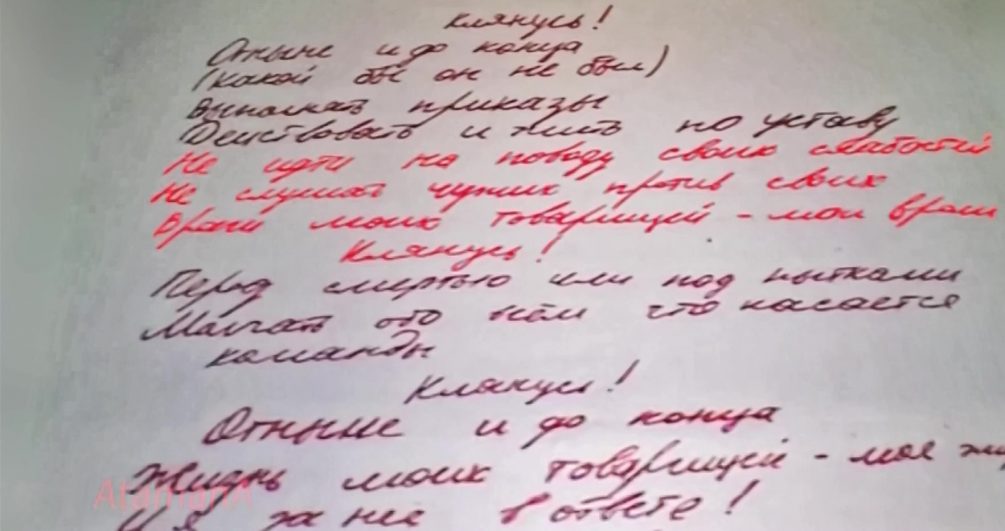 Клянусь!
Отныне и до конца
(какой бы он не был)
Выполнять приказы
Действовать и жить по уставу
Не идти на поводу своих слабостей
Не слушать чужих против своих
Враги моих товарищей - мои враги
Клянусь!
Перед смертью или под пытками
Молчать обо всём что касается
команды
Клянусь!
Отныне и до конца
Жизнь моих товарищей - моя
И я за неё в ответе!